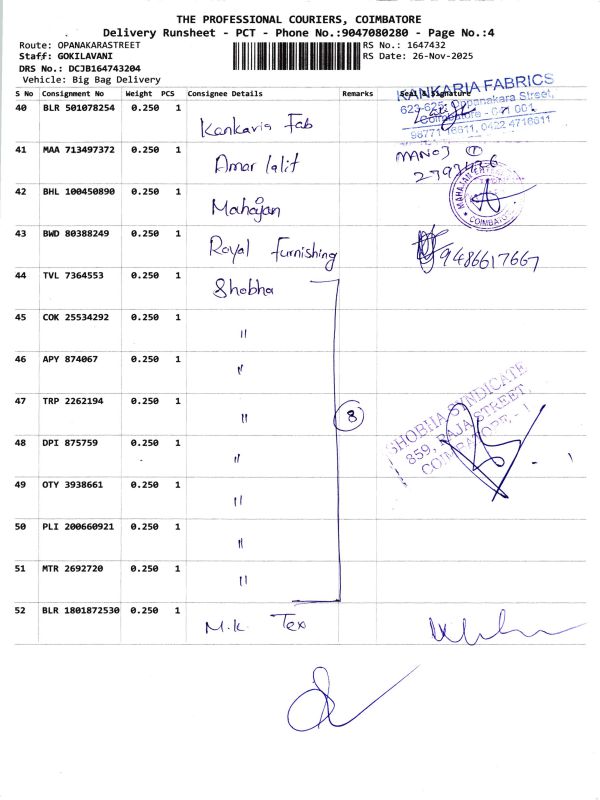 THE PROFESSIONAL COURIERS, COIMBATORE
Delivery Runsheet - PCT - Phone No.:9047080280 - Page No.:4
Route: OPANAKARASTREET RS No.: 1647432
Staff: GOKILAVANI RS Date: 26-Nov-2025
DRS No.: DCJB164743204
Vehicle: Big Bag Delivery
S No Consignment No Weight PCS Consignee Details Remarks Seal & Signature
KANKARIA FABRICS
623-625, Oppanakara Street,
Coimbatore - 641 001
98771 16611, 0422 4716611
40 BLR 501078254 0.250 1 Kankaria Fab
41 MAA 713497372 0.250 1 Amar lalit MANOJ
2793436
42 BHL 100450890 0.250 1 Mahajan
COIMBATORE
43 BWD 80388249 0.250 1 Royal Furnishing 9486617667
44 TVL 7364553 0.250 1 Shobha
45 COK 25534292 0.250 1 "
46 APY 874067 0.250 1 "
47 TRP 2262194 0.250 1 " 8
SHOBHA SYNDICATE
859, RAJA STREET,
COIMBATORE - 1
48 DPI 875759 0.250 1 "
49 OTY 3938661 0.250 1 "
50 PLI 200660921 0.250 1 "
51 MTR 2692720 0.250 1 "
52 BLR 1801872530 0.250 1 M.K. Tex